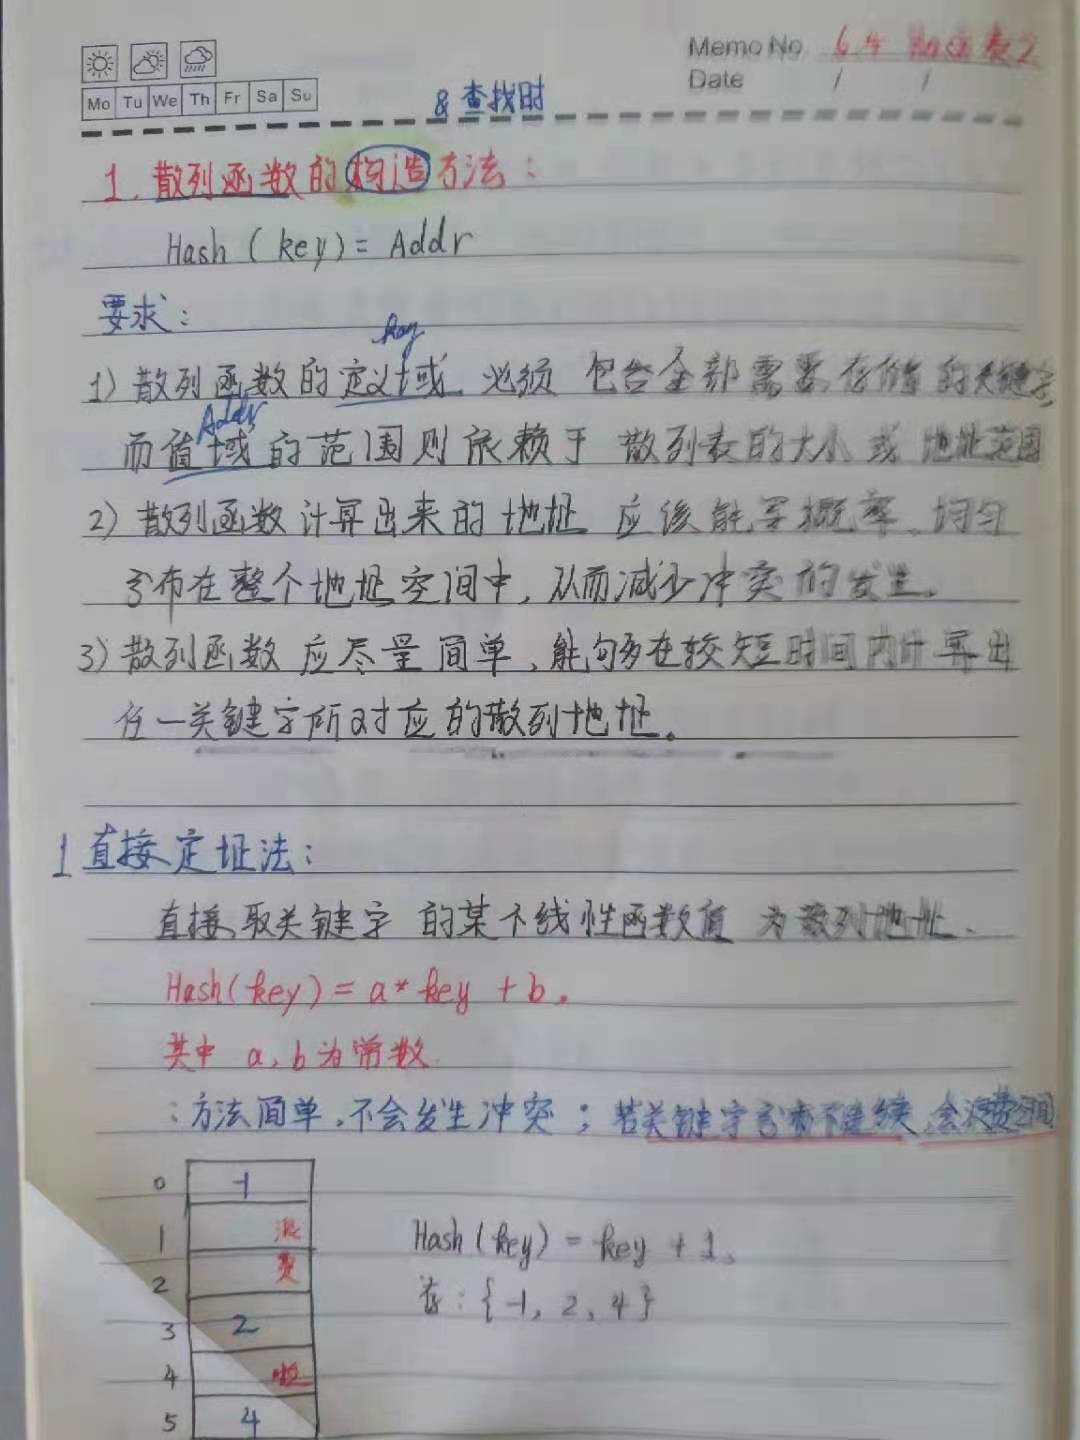 Memo No. 6.4 散列表2
Date / /
Mo Tu We Th Fr Sa Su
& 查找时
1. 散列函数的构造方法：
Hash (key) = Addr
要求：
key
1) 散列函数的定义域 必须 包含全部需要存储的关键字，
Addr
而值域的范围则依赖于 散列表的大小或 地址范围
2) 散列函数计算出来的地址 应该能等概率、均匀
分布在整个地址空间中，从而减少冲突的发生。
3) 散列函数 应尽量简单，能够在较短时间内计算出
任一关键字所对应的散列地址。
1 直接定址法：
直接取关键字 的某个线性函数值 为散列地址.
Hash(key) = a* key + b,
其中 a, b为常数.
：方法简单，不会发生冲突；若关键字分布不连续，会浪费空间
0 -1
1 浪
2 费
3 2
4 啦
5 4
Hash (key) = key + 1,
存：{-1, 2, 4}